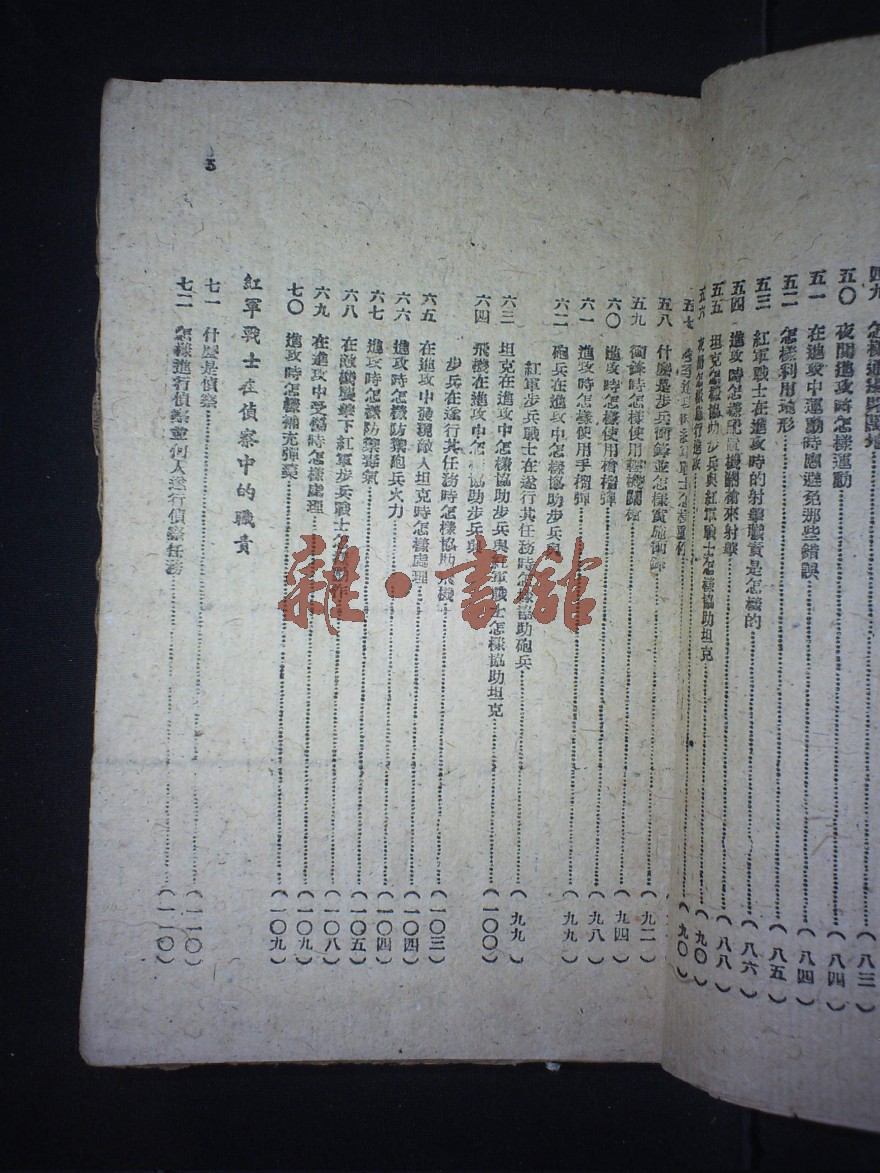 四九 怎樣通過
五〇 夜間進攻時怎樣運動
(八四)
五一 在進攻中運動時應避免那些錯誤
(八四)
五二 怎樣利用地形
(八五)
五三 紅軍戰士在進攻時的射擊職責是怎樣的
(八六)
五四 進攻時怎樣 機關槍來射擊
(八八)
五五 坦克怎樣協助步兵與紅軍戰士怎樣協助坦克
(九〇)
五六
五七
(九〇)
五八 什麼是步兵衝鋒並怎樣實施衝鋒
五九 衝鋒時怎樣使用輕機關槍
(九二)
六〇 進攻時怎樣使用槍榴彈
(九四)
六一 進攻時怎樣使用手榴彈
(九八)
六二 砲兵在進攻中怎樣協助步兵與
紅軍步兵戰士在遂行其任務時怎樣協助砲兵
(九九)
六三 坦克在進攻中怎樣協助步兵與紅軍戰士怎樣協助坦克
(一〇〇)
六四 飛機在進攻中怎樣協助步兵與
步兵在遂行其任務時怎樣協助飛機
(一〇三)
六五 在進攻中發現敵人坦克時怎樣處理
(一〇四)
六六 進攻時怎樣防禦砲兵火力
(一〇四)
六七 進攻時怎樣防禦毒氣
(一〇五)
六八 在敵機襲擊下紅軍步兵戰士怎樣動作
(一〇八)
六九 在進攻中受傷時怎樣處理
(一〇九)
七〇 進攻時怎樣補充彈藥
(一〇九)
紅軍戰士在偵察中的職責
七一 什麼是偵察
(一一〇)
七二 怎樣進行偵察並何人遂行偵察任務
(一一〇)
5
雜·書館